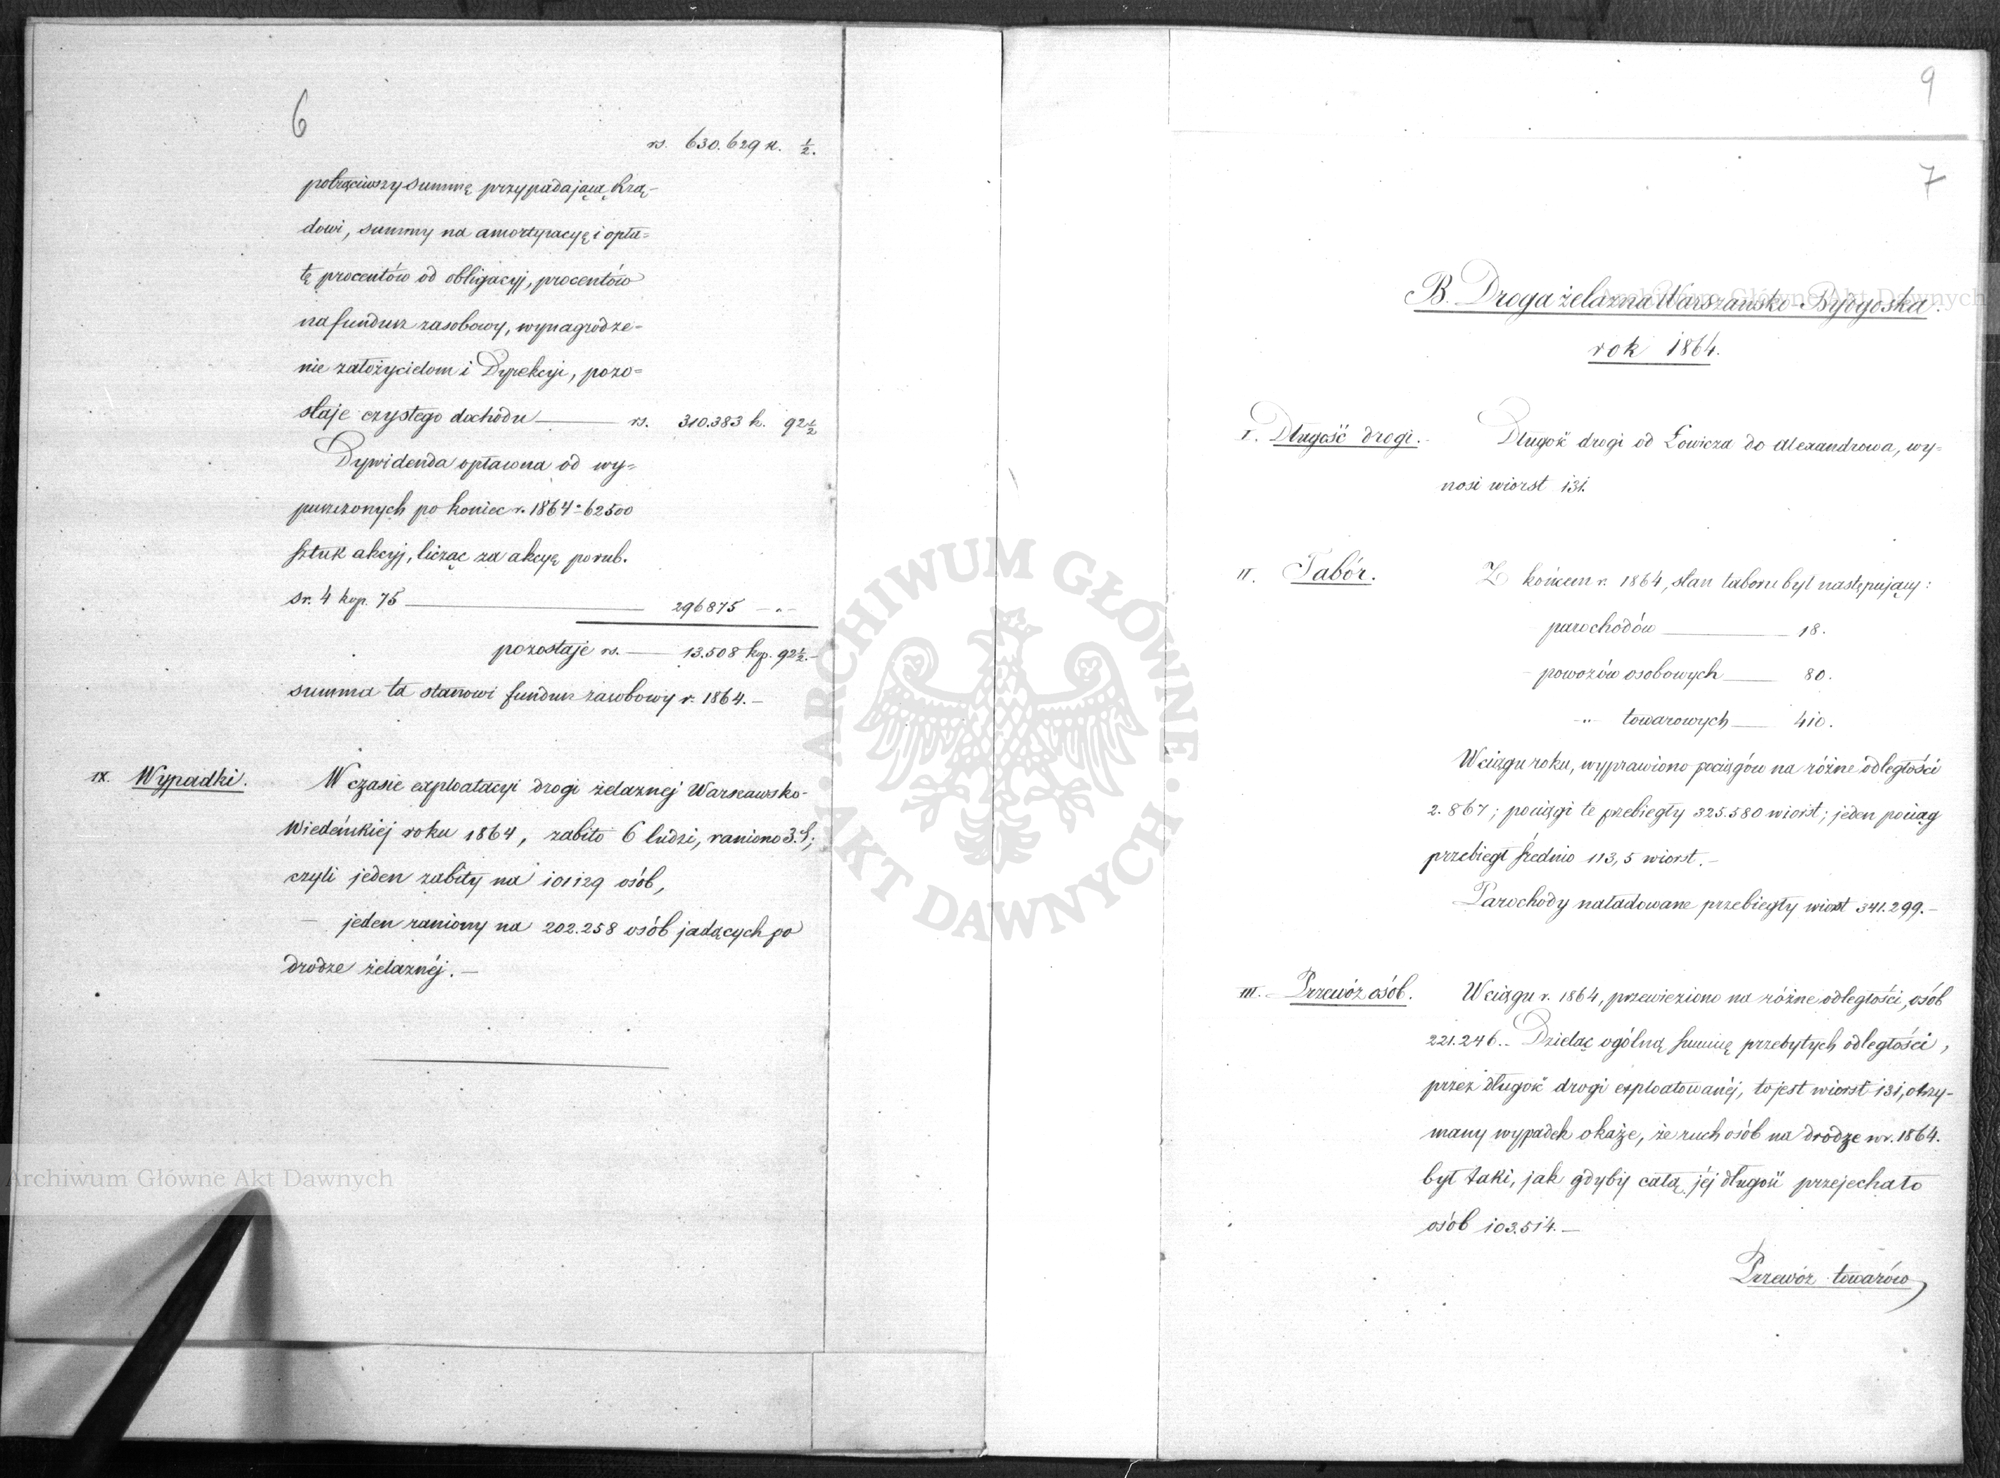 6
rs. 630.629 k. ½.
potrąciwszy summę przypadającą Rzą-
dowi, summy na amortyzacyę i opła=
tę procentów od obligacyj, procentów
na fundusz zasobowy, wynagrodze=
nie założycielom i Dyrekcyi, pozo=
staje czystego dochodu — rs. 310.383 k. 92½
Dywidenda opłacona od wy=
puszczonych po koniec r. 1864 - 62500
sztuk akcyj, licząc za akcyę po rub.
sr. 4 kop. 75 — 296875 — „ -
pozostaje rs. — 13.508 kop. 92½. -
summa ta stanowi fundusz zasobowy r. 1864. —
IX. Wypadki. W czasie exploatacyi drogi żelaznej Warszawsko-
Wiedeńskiej roku 1864, zabito 6 ludzi, raniono 3.;
czyli jeden zabity na 101129 osób,
— jeden raniony na 202.258 osób jadących po
drodze żelaznéj. —
9
7
B. Droga żelazna Warszawsko-Bydgoska.
rok 1864.
I. Długość drogi. - Długość drogi od Łowicza do Alexandrowa, wy-
nosi wiorst 131.
II. Tabór. Z końcem r. 1864, stan taboru był następujący:
parochodów — 18.
powozów osobowych — 80.
-„- towarowych — 410.
W ciągu roku, wyprawiono pociągów na różne odległości
2.867; pociągi te przebiegły 325.580 wiorst; jeden pociąg
przebiegł średnio 113,5 wiorst. -
Parochody naładowane przebiegły wiorst 341.299. -
III. - Przewóz osób. W ciągu r. 1864, przewieziono na różne odległości, osób
221.246. - Dzieląc ogólną summę przebytych odległości,
przez długość drogi exploatowanéj, to jest wiorst 131, otrzy-
many wypadek okaże, że ruch osób na drodze w r. 1864.
był taki, jak gdyby całą jéj długość przejechało
osób 103.514. —
Przewóz towarów
ARCHIWUM GŁÓWNE AKT DAWNYCH
Archiwum Główne Akt Dawnych
Archiwum Główne Akt Dawnych